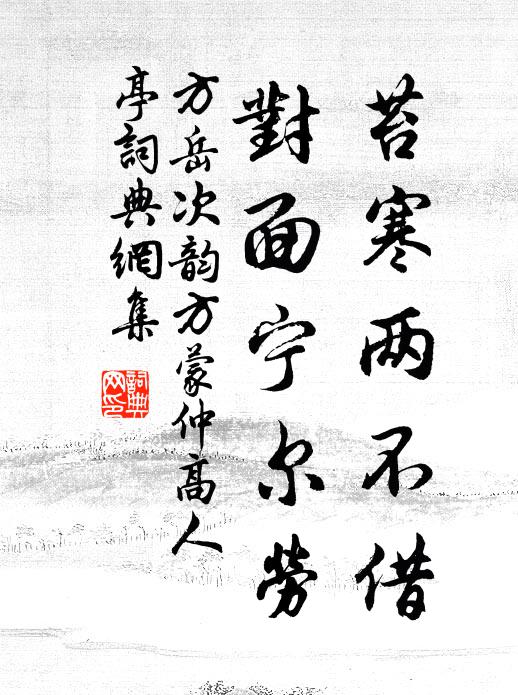 苔寒两不借
對面宁尔勞
方岳次韵方蒙仲高人
亭詞典網集
詞典网印